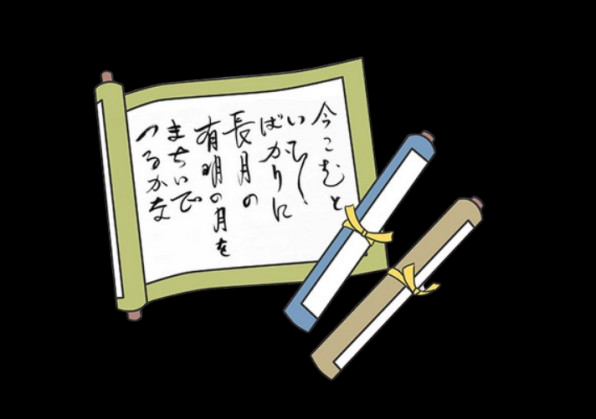 今こむと
いひし
ばかりに
長月の
有明の月を
まちいで
つるかな